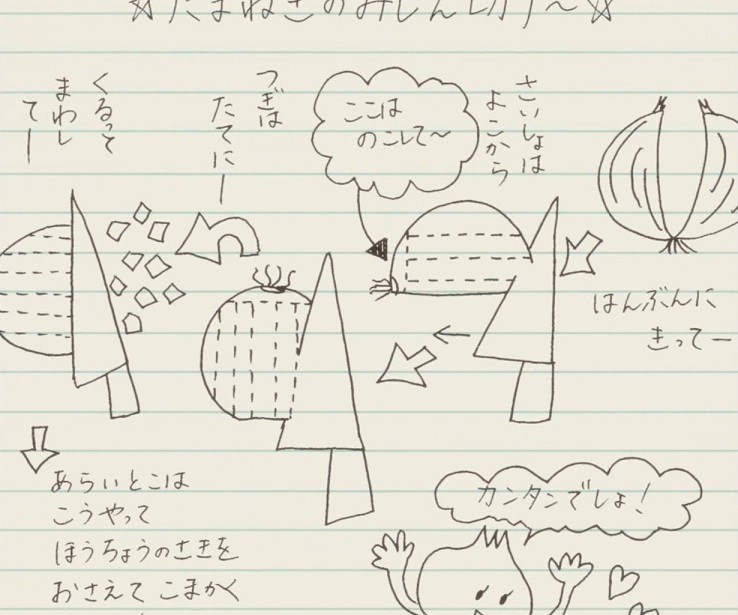 ☆たまねぎのみじん切り～☆
はんぶんに
きってー
さいしょは
よこから
ここは
のこして～
つぎは
たてにー
くるって
まわし
てー
あらいとこは
こうやって
ほうちょうのさきを
おさえて こまかく
カンタンでしょ!